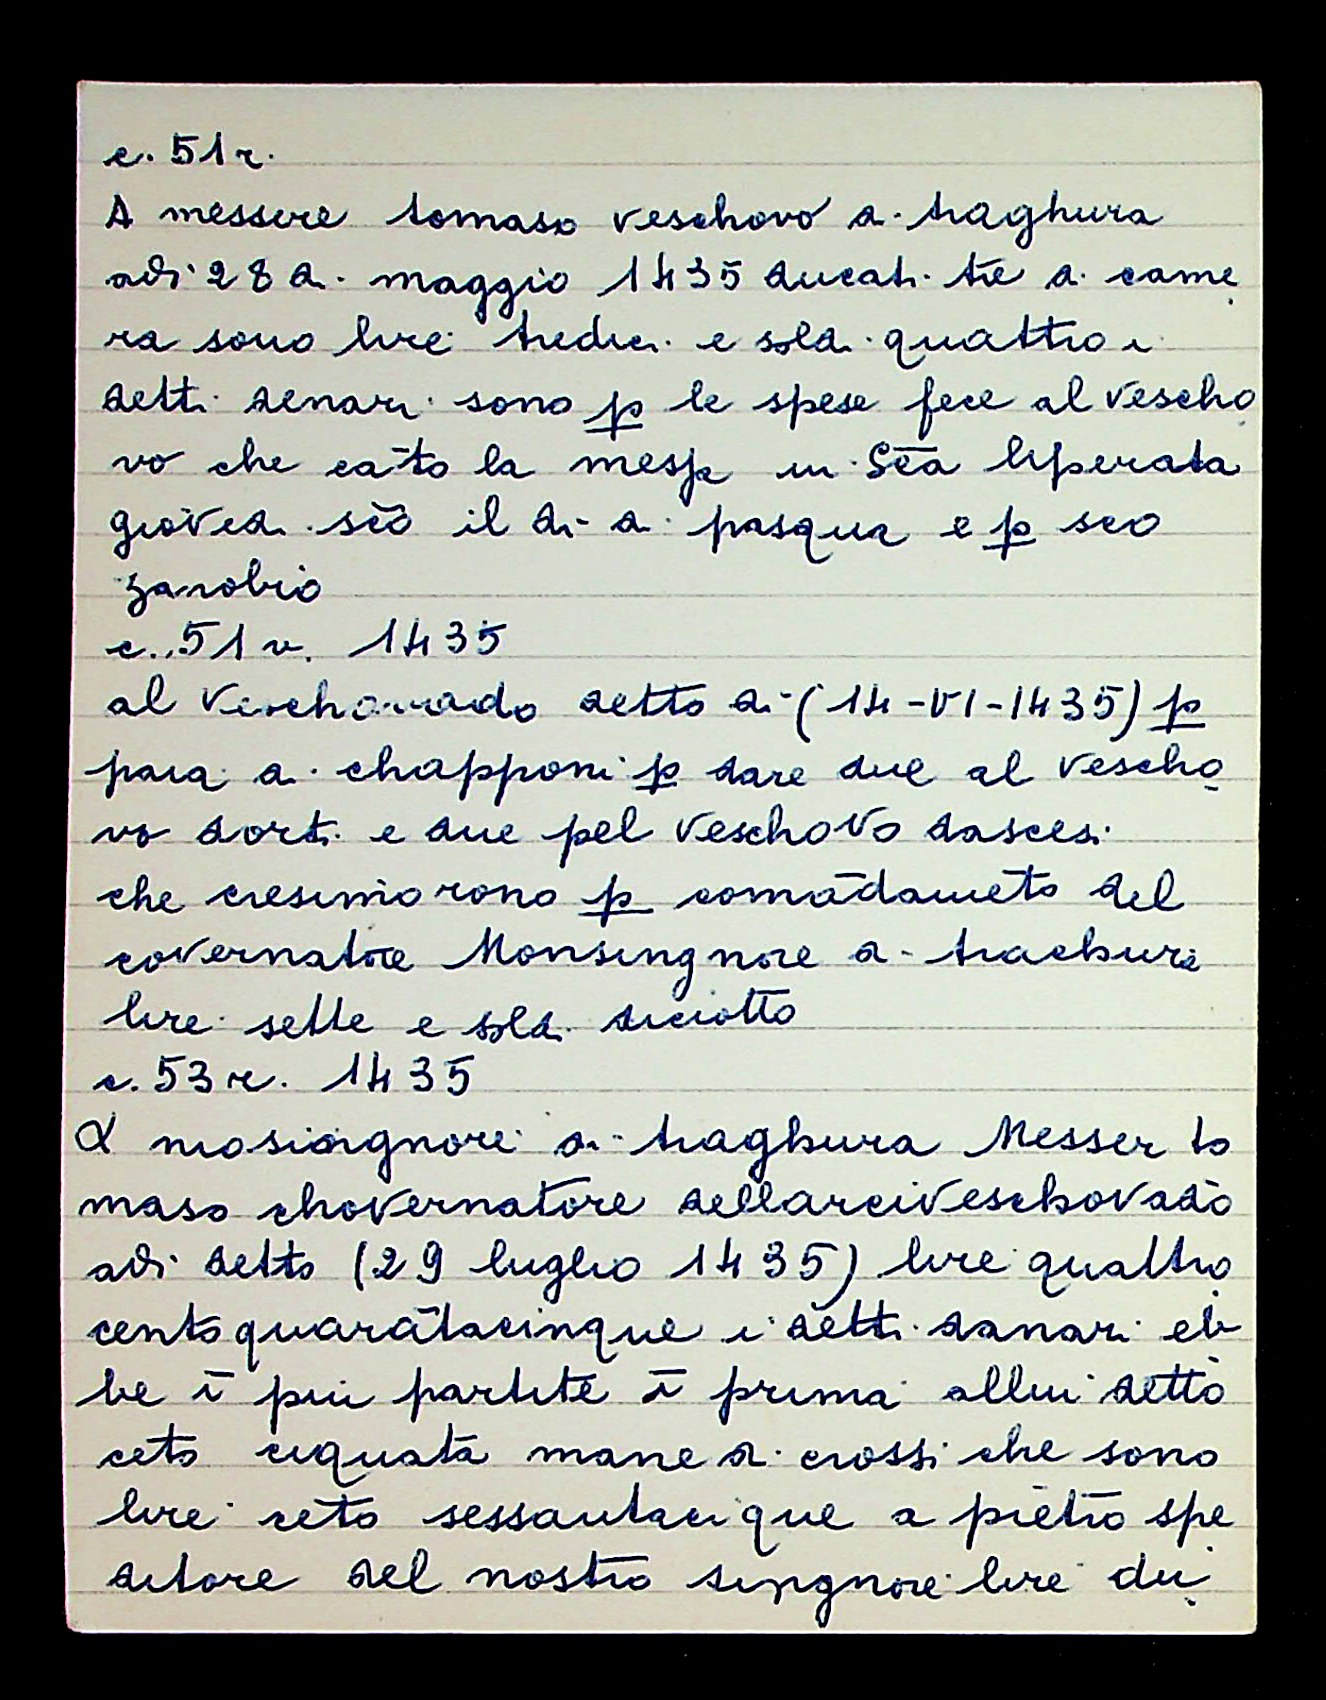 c. 51r.
A messere tomaso veschovo di traghura
adi 28 di maggio 1435 ducati tre di came
ra sono lire tredici e soldi quattro i
detti denari sono p̱ le spese fece al vescho
vo che cātō la mess in Sc̄a liperata
giovedi sc̄o il di di pasqua e p̱ sco
zanobio
c. 51v. 1435
al veschovado detto di (14-VI-1435) p̱
paia di chapponi p̱ dare due al vescho
vo dorti e due pel veschovo dascesi
che cresimorono p̱ comādamēto del
covernatore Monsingnore di trachura
lire sette e soldi diciotto
c. 53r. 1435
A mosingnore di traghura Messer to
maso chovernatore dellarciveschovado
adi detto (29 luglio 1435) lire quattro
centoquarātacinque i detti danari eb
be ī piu partite ī prima allui detto
cēto ciquātā mane di crossi che sono
lire cēto sessantacique a pietro spe
ditore del nostro singnore lire du